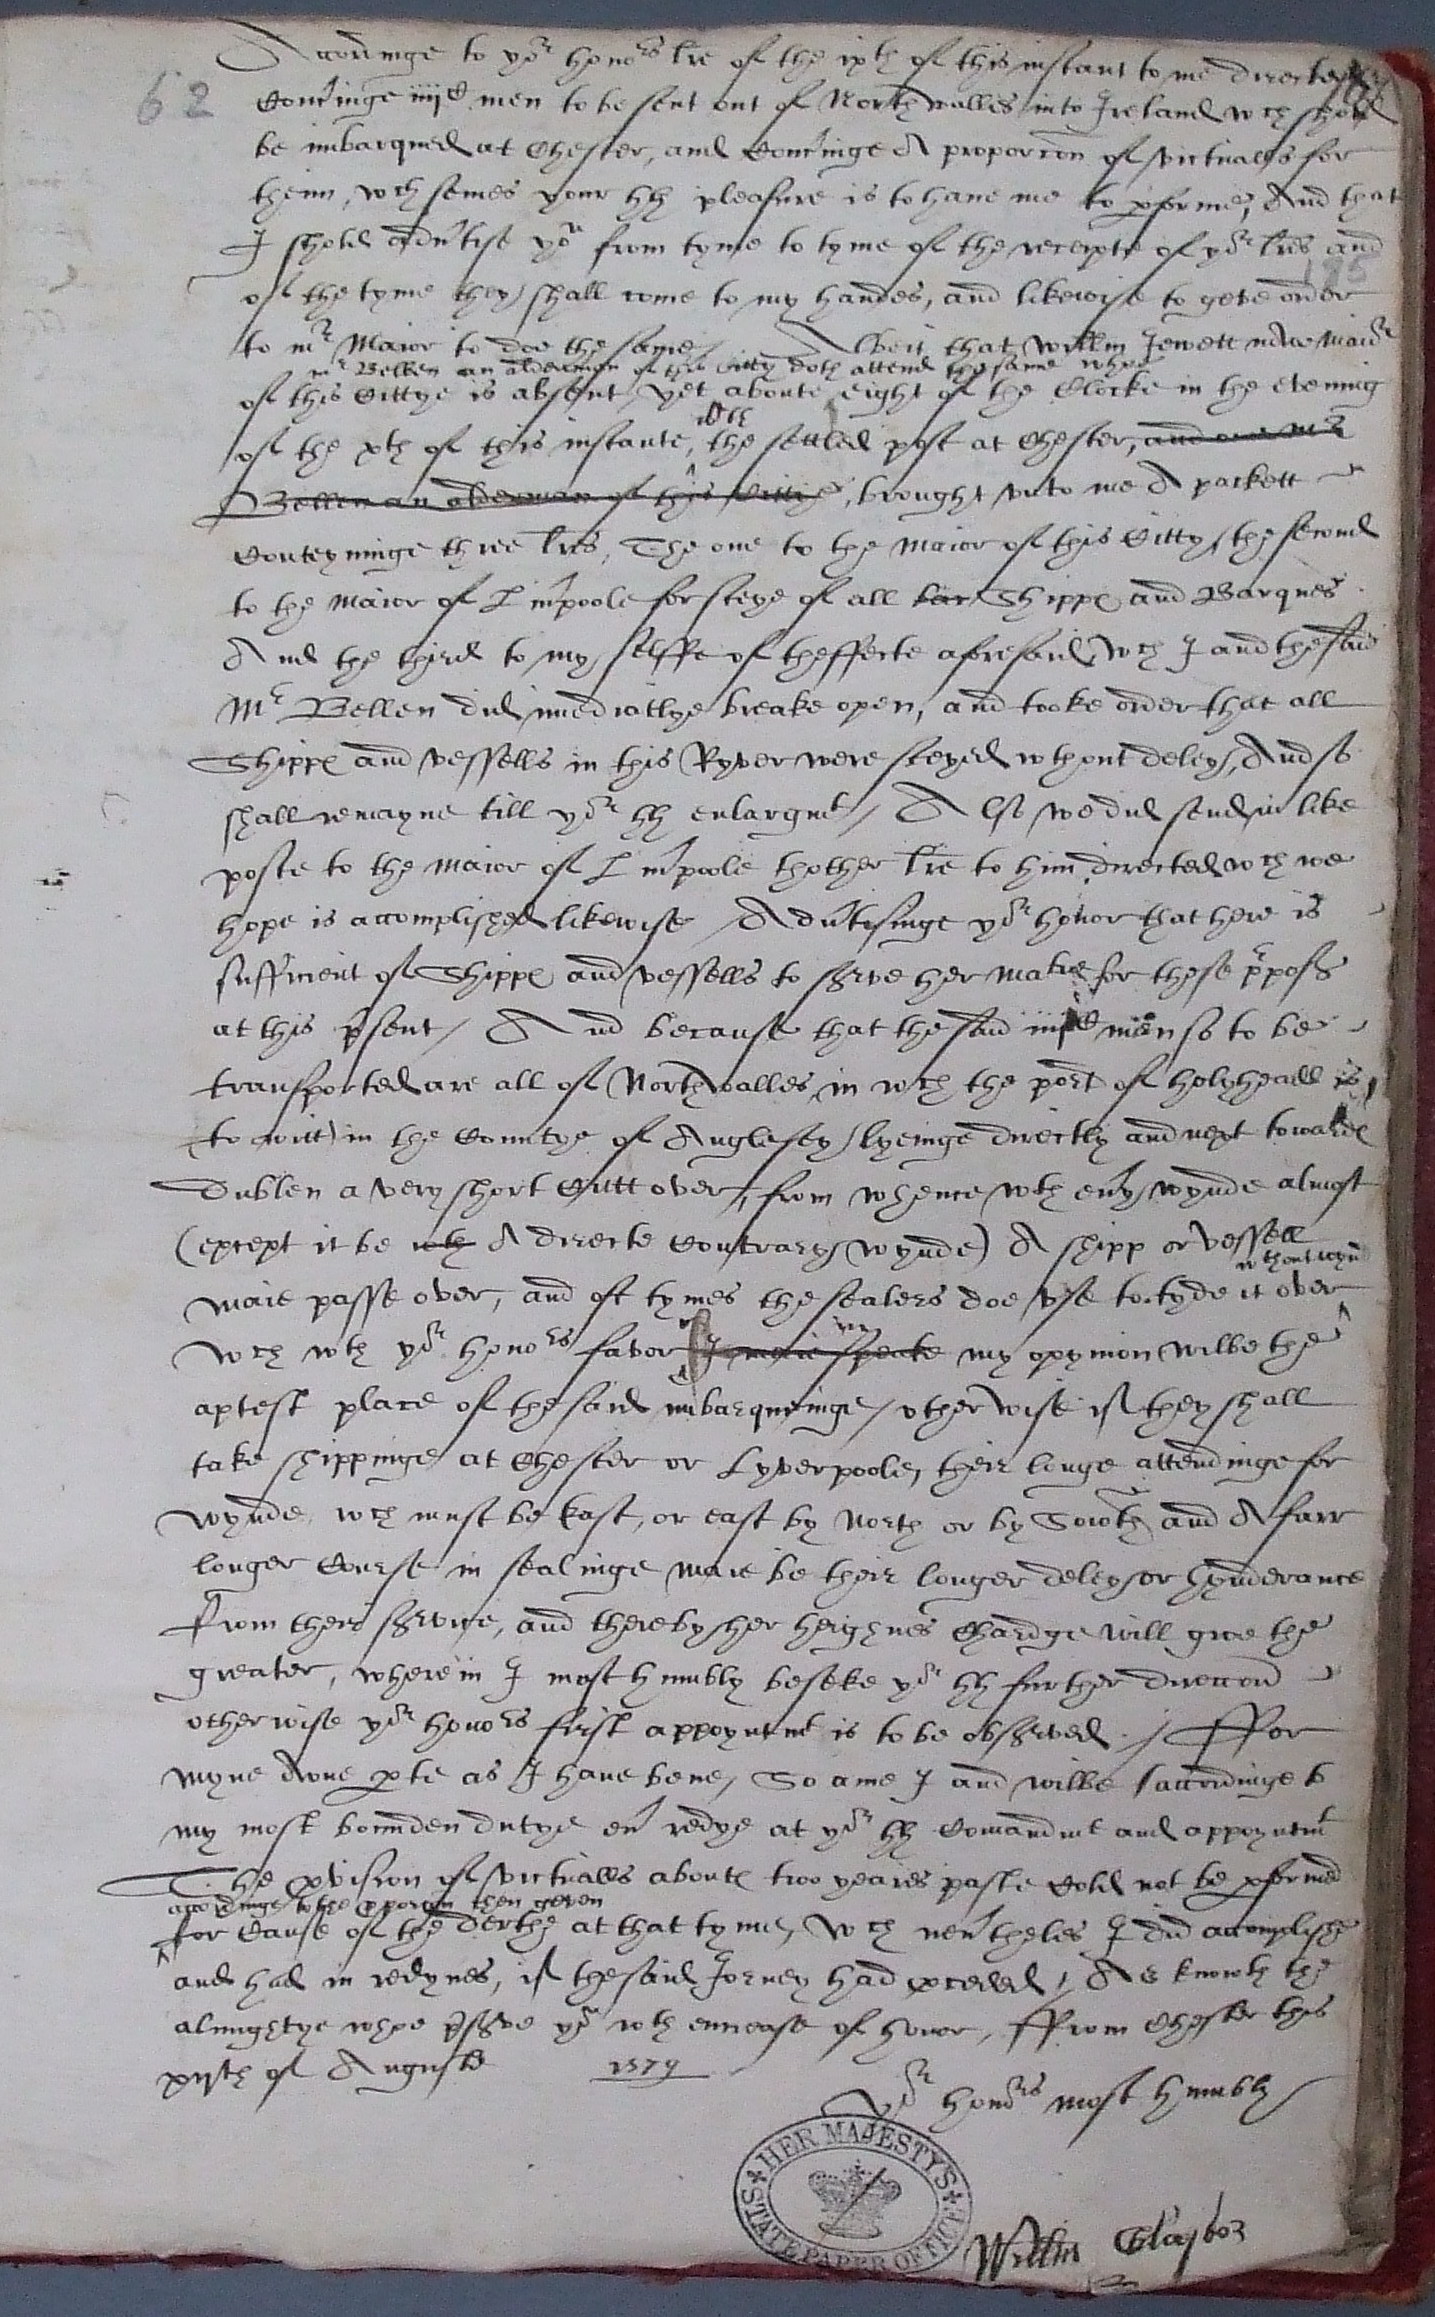 62
Accordinge to yor honors lre of the ixth of this instant to me directed
Conc'inge iiijC men to be sent out of Northwalles into Ireland wch shold
be imbarqued at Chester, and Conc'inge A proporcon of victualls for
theim, wch semes your hh pleasure is to haue me to pforme, And that
I shold adu'tise yor from tyme to tyme of the receipte of yor lres and
185
of the tyme they shall come to my handes, and likewise to geve order
to mr Maior to doe the same / Albeit that Willm Jewett nowe Maior
mr Bellen an alderman of this Citty doth attend the same whoe
of this Cittye is absent yet aboute eight of the Clocke in the evening
wth
of the xth of this instante, the settled post at Chester, and one mr
Bellen an alderman of this Cittie, brought vnto me A packett
Conteyninge three lres, The one to the Maior of this Citty, the second
to the Maior of Liu'poole for steye of all bar Shippes and Barques
And the third to my selffe of theffecte aforesaid, wch I and the said
Mr Bellen did imediatlye breake open, and tooke order that all
Shippes and vessells in this Ryver were steyed wthout deley, And so
shall remayne till yor hh enlargmt / Also we did send in like
poste to the Maior of Liu'poole thother lre to him directed wch we
hope is accomplished likewise / Adu'tisinge yor honor that here is
sufficient of Shippes and vessells to serve her Matie for these p'poses
at this p'sent / And because that the said iiijC men so to be
transported are all of Northwalles, in wch the port of holyheadd is
to witt in the Countye of Anglesey / lyeinge directly and next towardes
Dublen a very short Cutt over, from whence wth eu'y wynde almost
(except it be wth A directe Contrary wynde) A shipp or vessell
wthout wynd
maie passe over, and oft tymes the sealers doe vse to tyde it over
in
wch wth yor honors favor I maie speake my opynion wilbe the
aptest place of the said imbarqueinge / otherwise if they shall
take shippinge at Chester or Lyverpoole, their longe attendinge for
wynde, wch must be East, or east by North or by Sowth and A farr
longer Course in sealinge maie be their longer deley or hynderance
from their service, and thereby her heighnes Chardge will groe the
greater, wherein I most humbly beseke yor hh further direccon
otherwise yor honors first appoyntmt is to be observed ./ Ffor
myne owne pte as I haue bene, So ame I and wilbe (accordinge to
my most bounden dutye eu' redye at yor hh Comandmt and appoyntmt
The pvision of victualls aboute two yeares paste Cold not be pformed
accordinge to the pporcon then geven
for Cause of the derthe at that tyme, wch neu'theles I did accomplishe
and had in redynes, if the said Jorney had pceded / As knowth the
almightye whoe p'serve yor wth encrease of honor, Ffrom Chester this
xijth of Auguste 1579
Yor honors most humbly
HER MAJESTY'S
STATE PAPER OFFICE
Willm Glasior